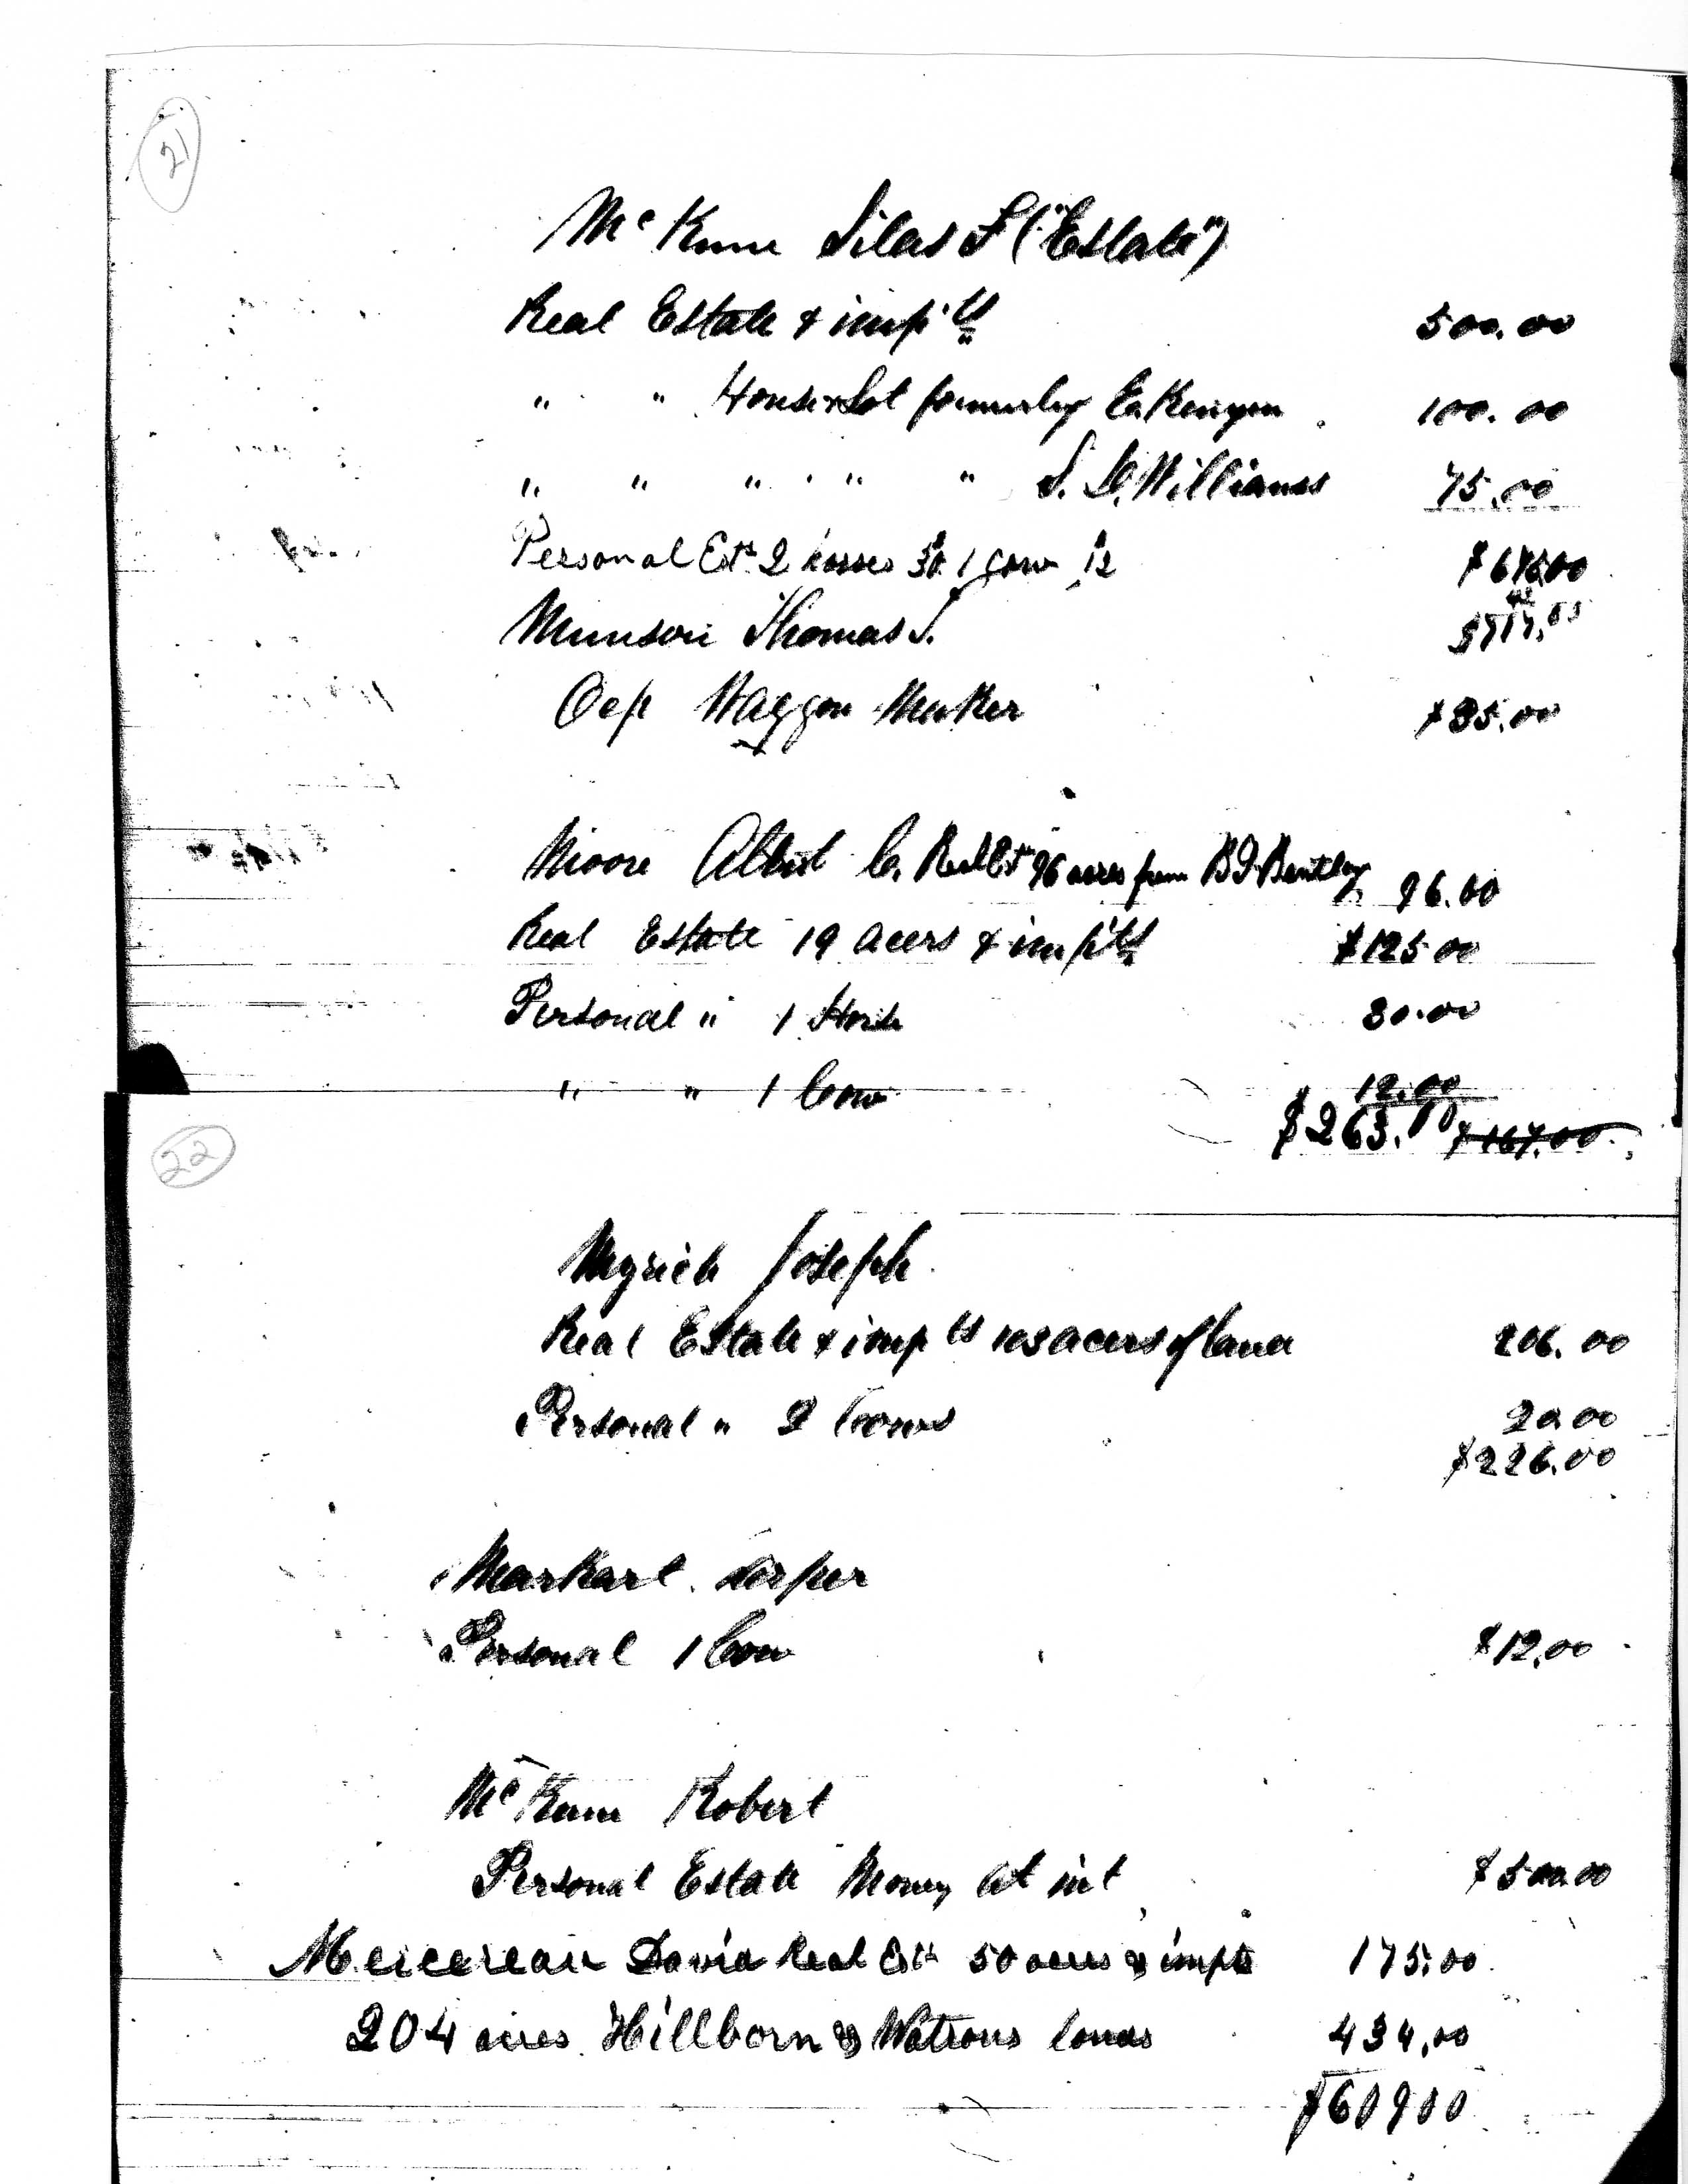 21
Mc Kune Silas F ("Estate")
Real Estate & imp'ts 500.00
" " House & Lot formerly E. Kenyon 100.00
" " " " " S. Williams 75.00
Personal Est. 2 horses 30. 1 Cow 12 $675.00
Munson Thomas S.
Ocp Waggon Maker $35.00
Moore Albert C. Real Est 96 acres from B Bentley 96.00
Real Estate 19 acers & imp'ts $125 00
Personal " 1 Horse 30.00
" " 1 Cow 12.00
$263.00 $167.00
22
Myrick Joseph
Real Estate & imp ts 103 acers of land 206.00
Personal " 2 Cows 20.00
$226.00
Markart
Personal 1 Cow $12.00
Mc Kune Robert
Personal Estate Money at int $500.00
Mercereau David Real Est 50 acres & impts 175.00
204 acres Hillborn & Watrous lands 434.00
$609 00